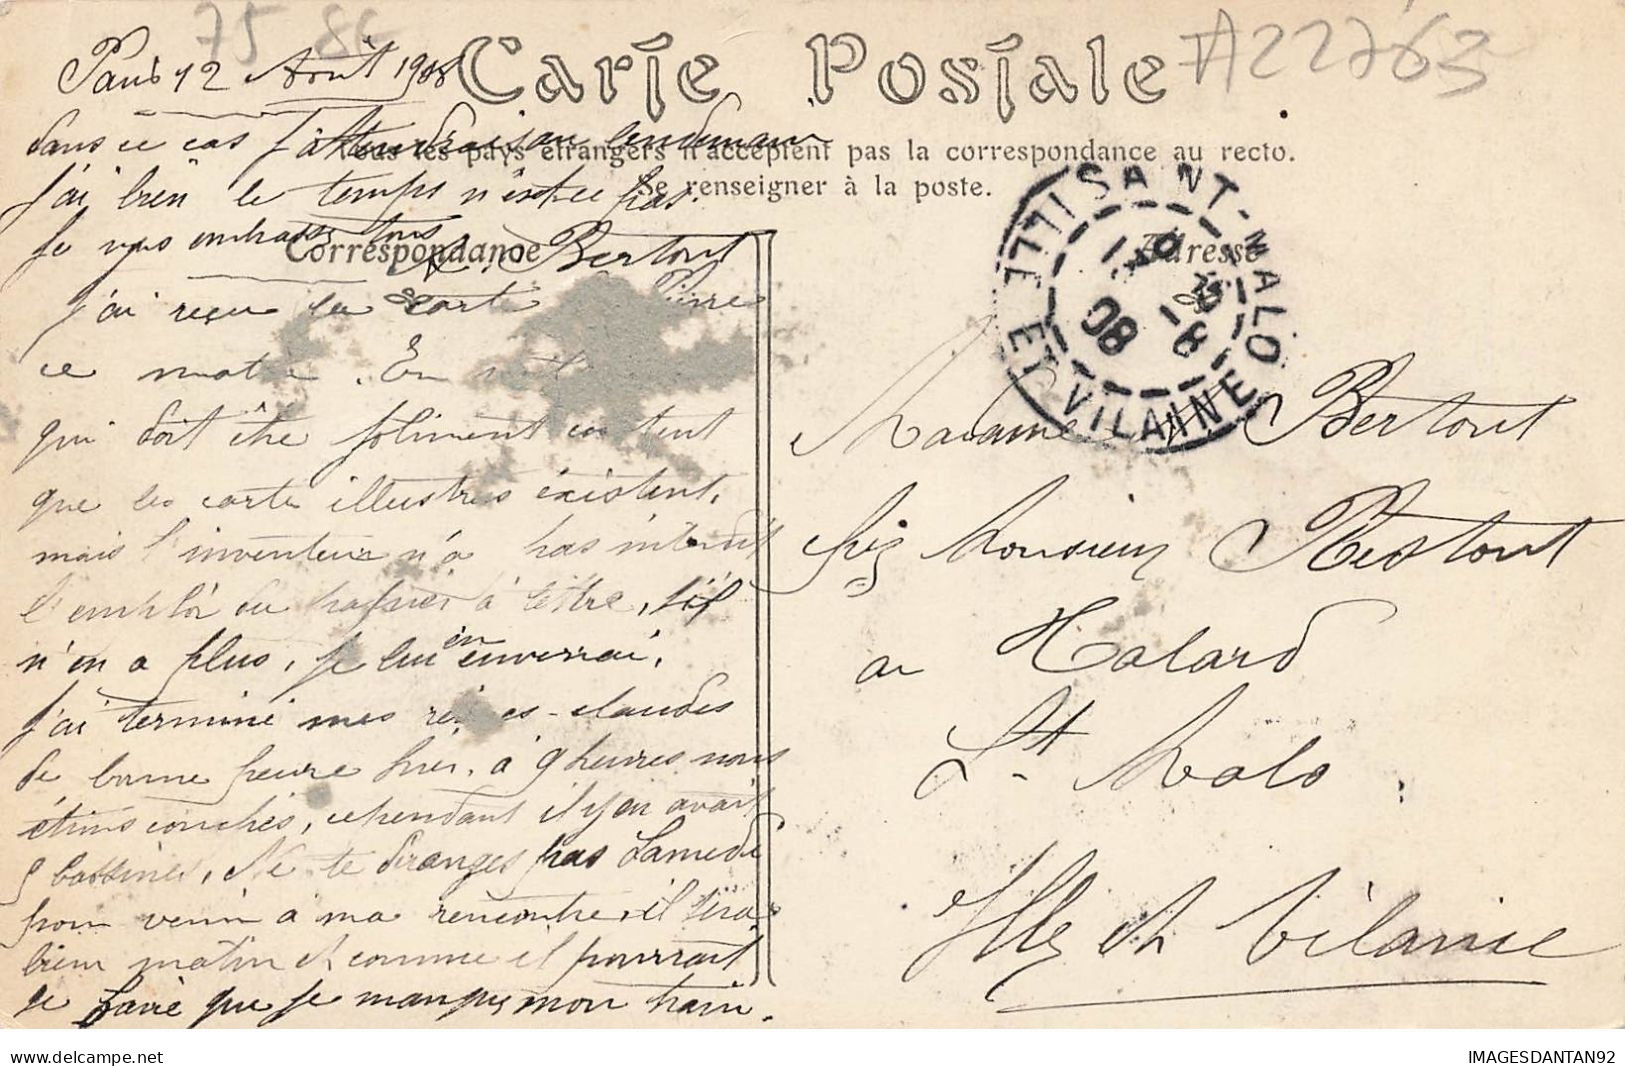 75 86
A22763
Carte Postale
Tous les pays étrangers n'acceptent pas la correspondance au recto.
Se renseigner à la poste.
Correspondance
Adresse
Paris 12 Août 1908
dans ce cas j'attendrais au lendemain
j'ai bien le temps n'est ce pas.
Je vous embrasse tous
Bertout
j'ai reçu la carte Pierre
ce matin. En
qui doit être joliment content
que les cartes illustrées existent,
mais l'inventeur n'a pas interdit
l'emploi du papier à lettre, s'il
n'en a plus, je lui en enverrai.
j'ai terminé mes reines-claudes
de bonne heure hier, à 9 heures nous
étions couchés, cependant il y en avait
9 bassines. Ne te déranges pas Samedi
pour venir à ma rencontre, il sera
bien matin et comme il pourrait
se faire que je manque mon train.
SAINT-MALO
ILLE ET VILAINE
13 -8
08
Madame Bertout
chez Monsieur Bertout
à Halard
St Malo
Ille et Vilaine
IMAGESDANTAN92